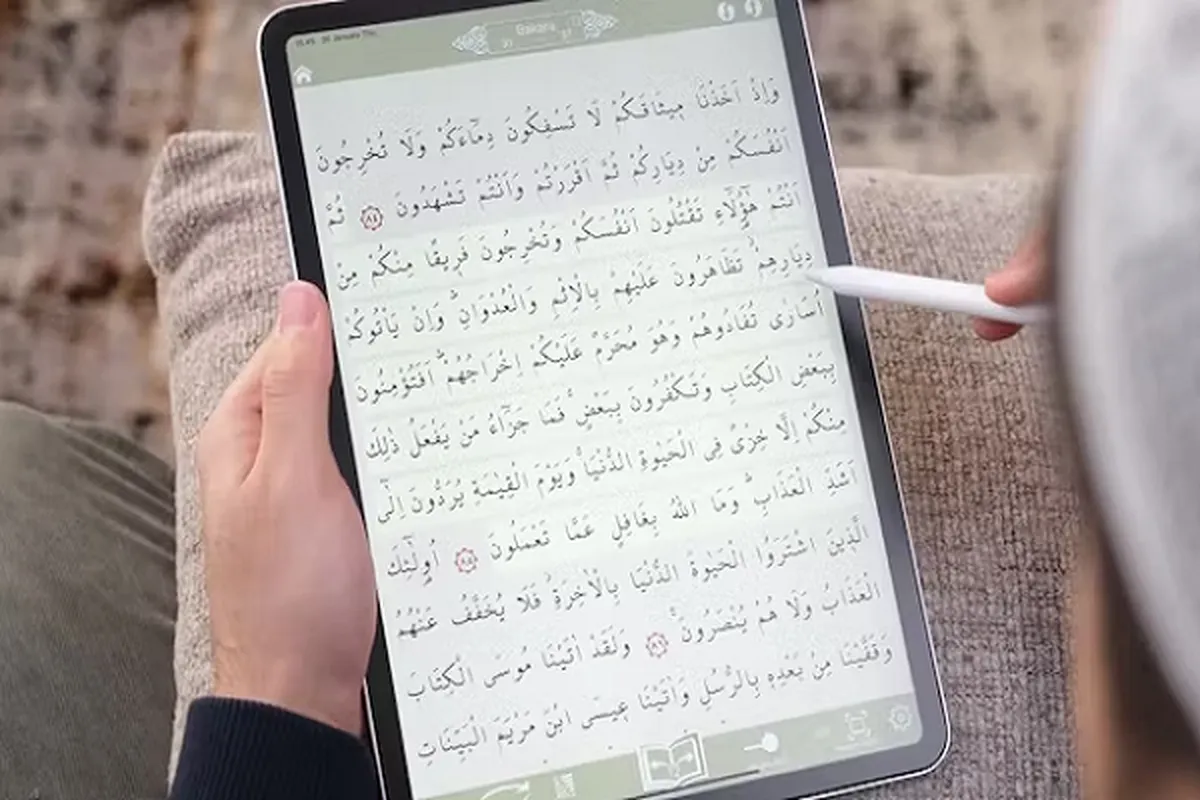 Bakara
وَاِذْ اَخَذْنَا مٖيثَاقَكُمْ لَا تَسْفِكُونَ دِمَٓاءَكُمْ وَلَا تُخْرِجُونَ
اَنْفُسَكُمْ مِنْ دِيَارِكُمْ ثُمَّ اَقْرَرْتُمْ وَاَنْتُمْ تَشْهَدُونَ ٨٤ ثُمَّ
اَنْتُمْ هٰٓؤُ۬لَٓاءِ تَقْتُلُونَ اَنْفُسَكُمْ وَتُخْرِجُونَ فَرٖيقًا مِنْكُمْ مِنْ
دِيَارِهِمْۘ تَظَاهَرُونَ عَلَيْهِمْ بِالْاِثْمِ وَالْعُدْوَانِۜ وَاِنْ يَاْتُوكُمْ
اُسَارٰى تُفَادُوهُمْ وَهُوَ مُحَرَّمٌ عَلَيْكُمْ اِخْرَاجُهُمْۜ اَفَتُؤْمِنُونَ
بِبَعْضِ الْكِتَابِ وَتَكْفُرُونَ بِبَعْضٍۚ فَمَا جَزَٓاءُ مَنْ يَفْعَلُ ذٰلِكَ
مِنْكُمْ اِلَّا خِزْىٌ فِى الْحَيٰوةِ الدُّنْيَاۚ وَيَوْمَ الْقِيٰمَةِ يُرَدُّونَ اِلٰٓى
اَشَدِّ الْعَذَابِۜ وَمَا اللّٰهُ بِغَافِلٍ عَمَّا تَعْمَلُونَ ٨٥ اُو۬لٰٓئِكَ
الَّذٖينَ اشْتَرَوُا الْحَيٰوةَ الدُّنْيَا بِالْاٰخِرَةِ فَلَا يُخَفَّفُ عَنْهُمُ
الْعَذَابُ وَلَا هُمْ يُنْصَرُونَ ٨٦ وَلَقَدْ اٰتَيْنَا مُوسَى الْكِتَابَ
وَقَفَّيْنَا مِنْ بَعْدِهٖ بِالرُّسُلِ وَاٰتَيْنَا عٖيسَى ابْنَ مَرْيَمَ الْبَيِّنَاتِ